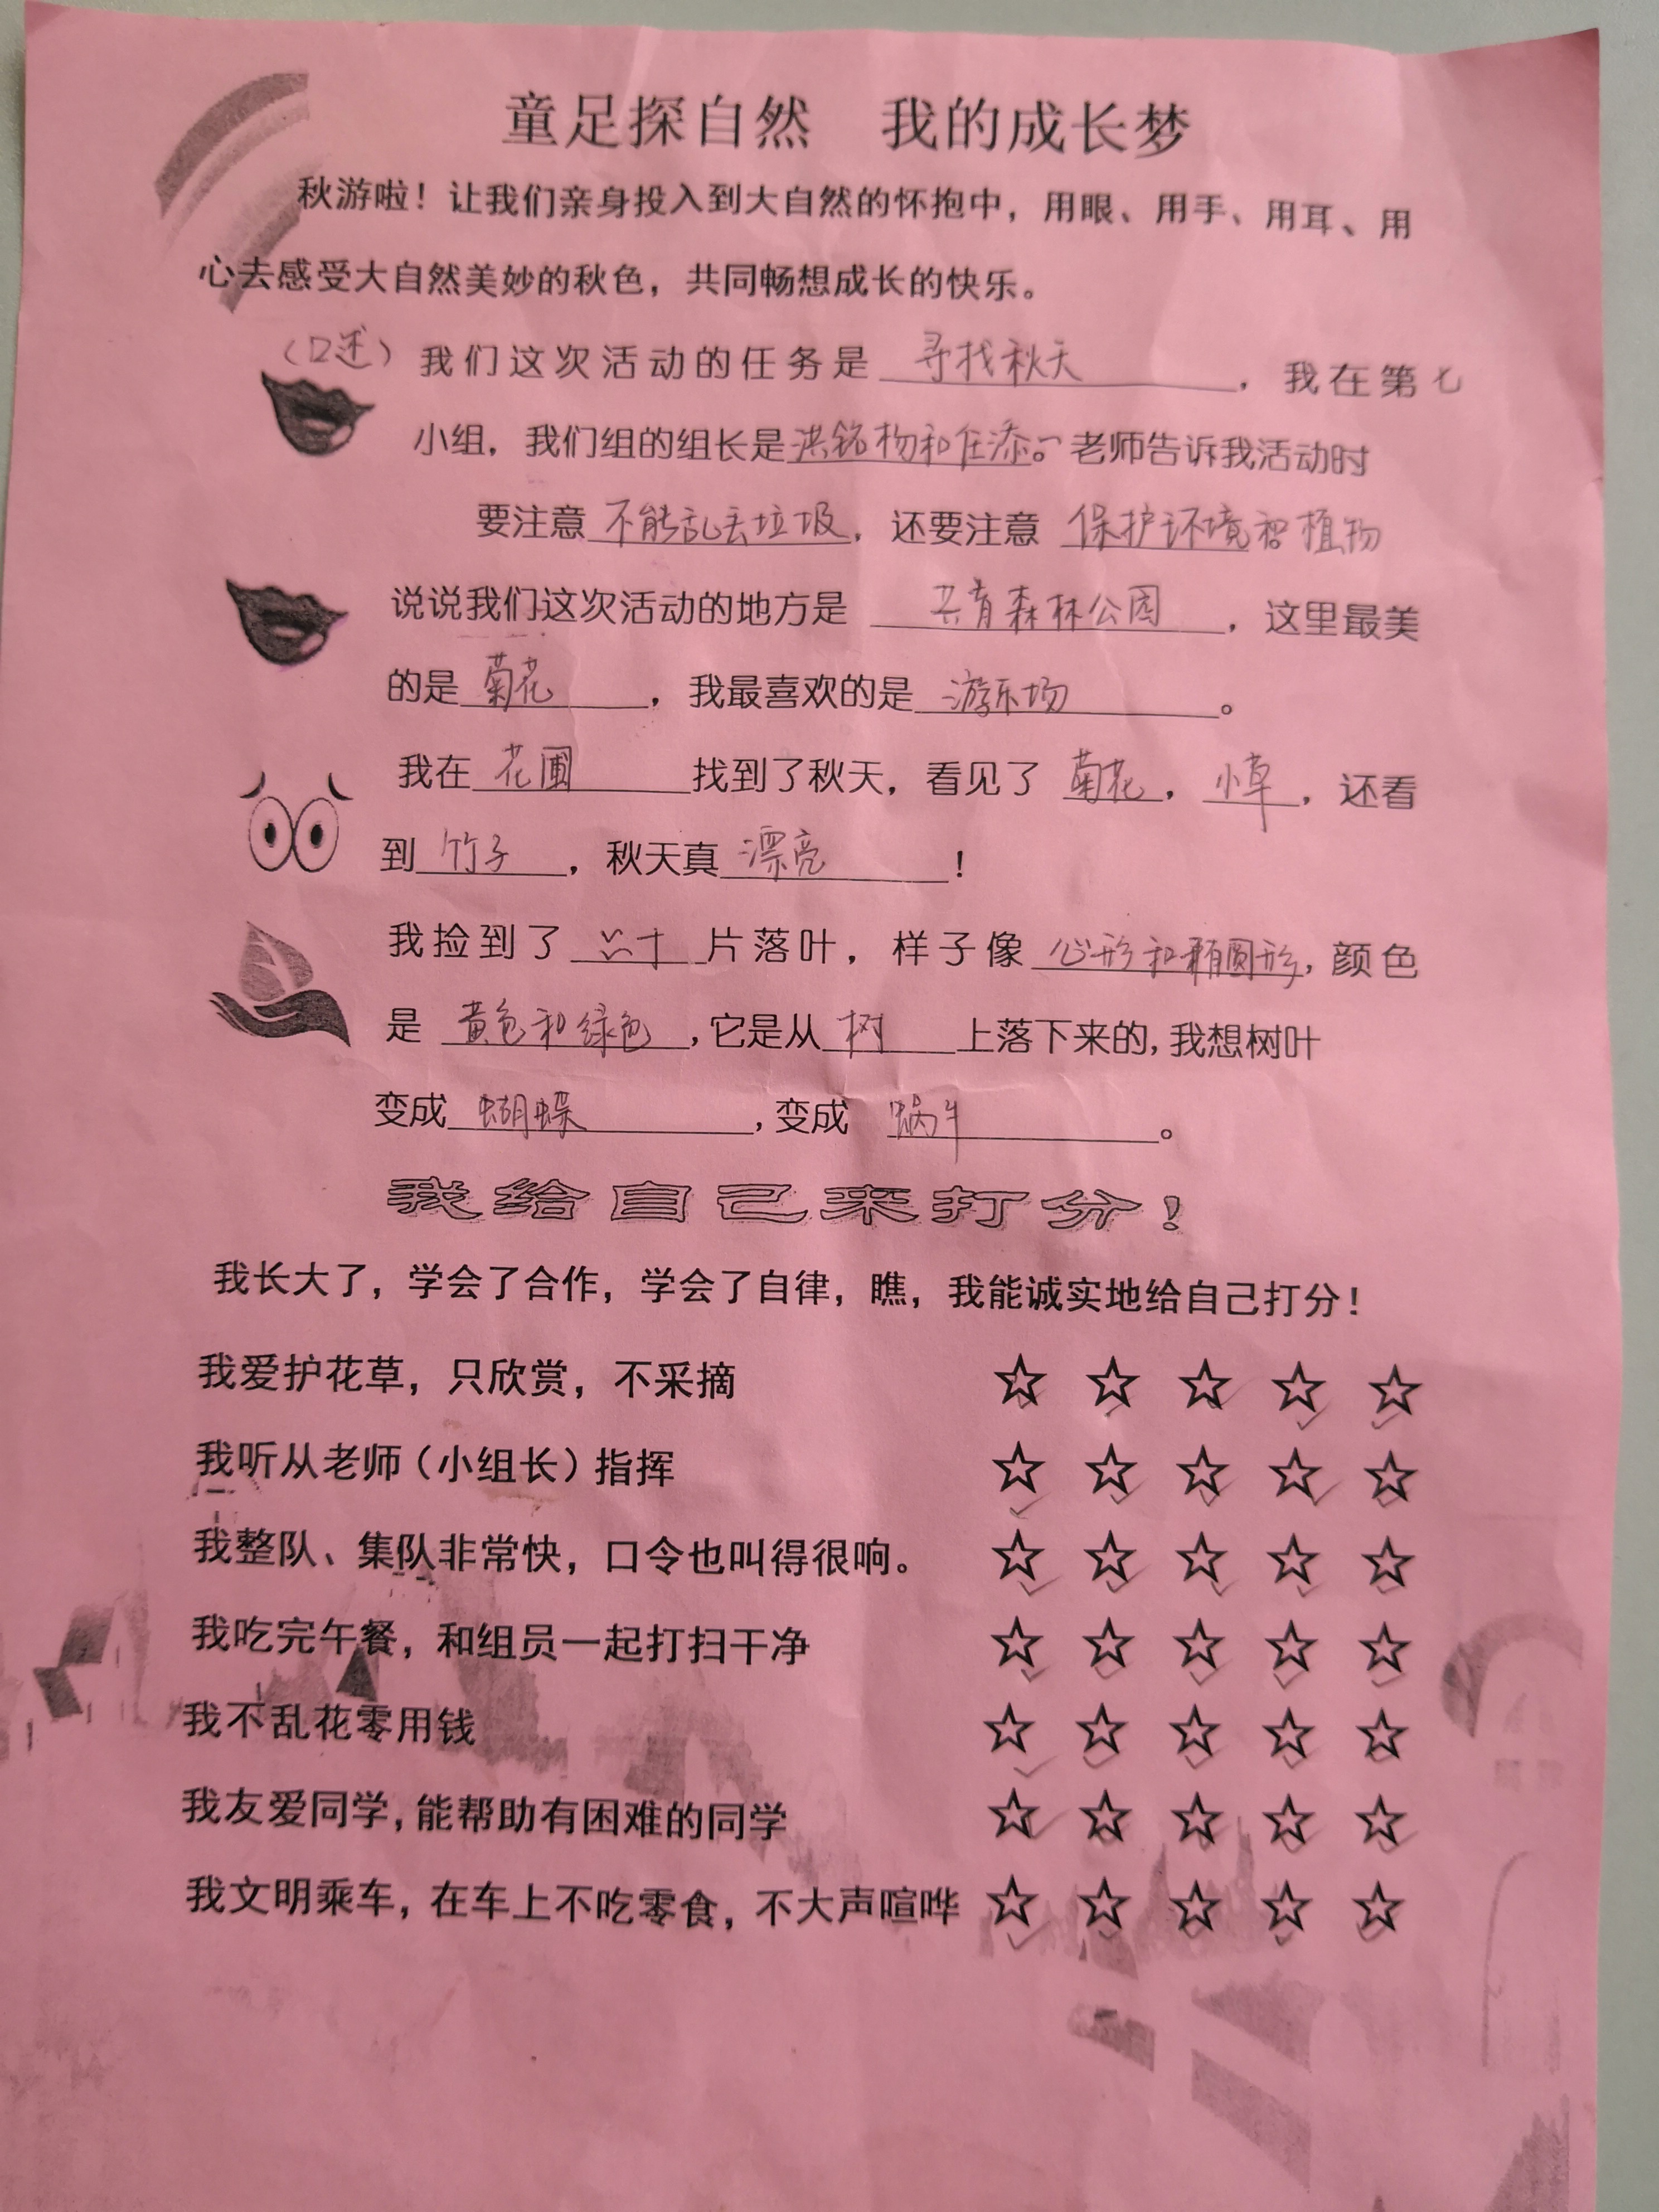 童足探自然 我的成长梦
秋游啦！让我们亲身投入到大自然的怀抱中，用眼、用手、用耳、用
心去感受大自然美妙的秋色，共同畅想成长的快乐。
（口述）我们这次活动的任务是 寻找秋天 ，我在第七
小组，我们组的组长是洪铭杨和任添一。老师告诉我活动时
要注意 不能乱丢垃圾，还要注意 保护环境和植物
说说我们这次活动的地方是 共青森林公园 ，这里最美
的是 菊花 ，我最喜欢的是 游乐场 。
我在 花圃 找到了秋天，看见了 菊花，小草，还看
到 竹子 ，秋天真 漂亮 ！
我捡到了 片落叶，样子像 心形和椭圆形，颜色
是 黄色和绿色 ,它是从 树 上落下来的,我想树叶
变成 蝴蝶 ,变成 蜗牛 。
我给自己来打分！
我长大了，学会了合作，学会了自律，瞧，我能诚实地给自己打分！
我爱护花草，只欣赏，不采摘 ☆ ☆ ☆ ☆ ☆
我听从老师（小组长）指挥 ☆ ☆ ☆ ☆ ☆
我整队、集队非常快，口令也叫得很响。 ☆ ☆ ☆ ☆ ☆
我吃完午餐，和组员一起打扫干净 ☆ ☆ ☆ ☆ ☆
我不乱花零用钱 ☆ ☆ ☆ ☆ ☆
我友爱同学,能帮助有困难的同学 ☆ ☆ ☆ ☆ ☆
我文明乘车，在车上不吃零食，不大声喧哗 ☆ ☆ ☆ ☆ ☆